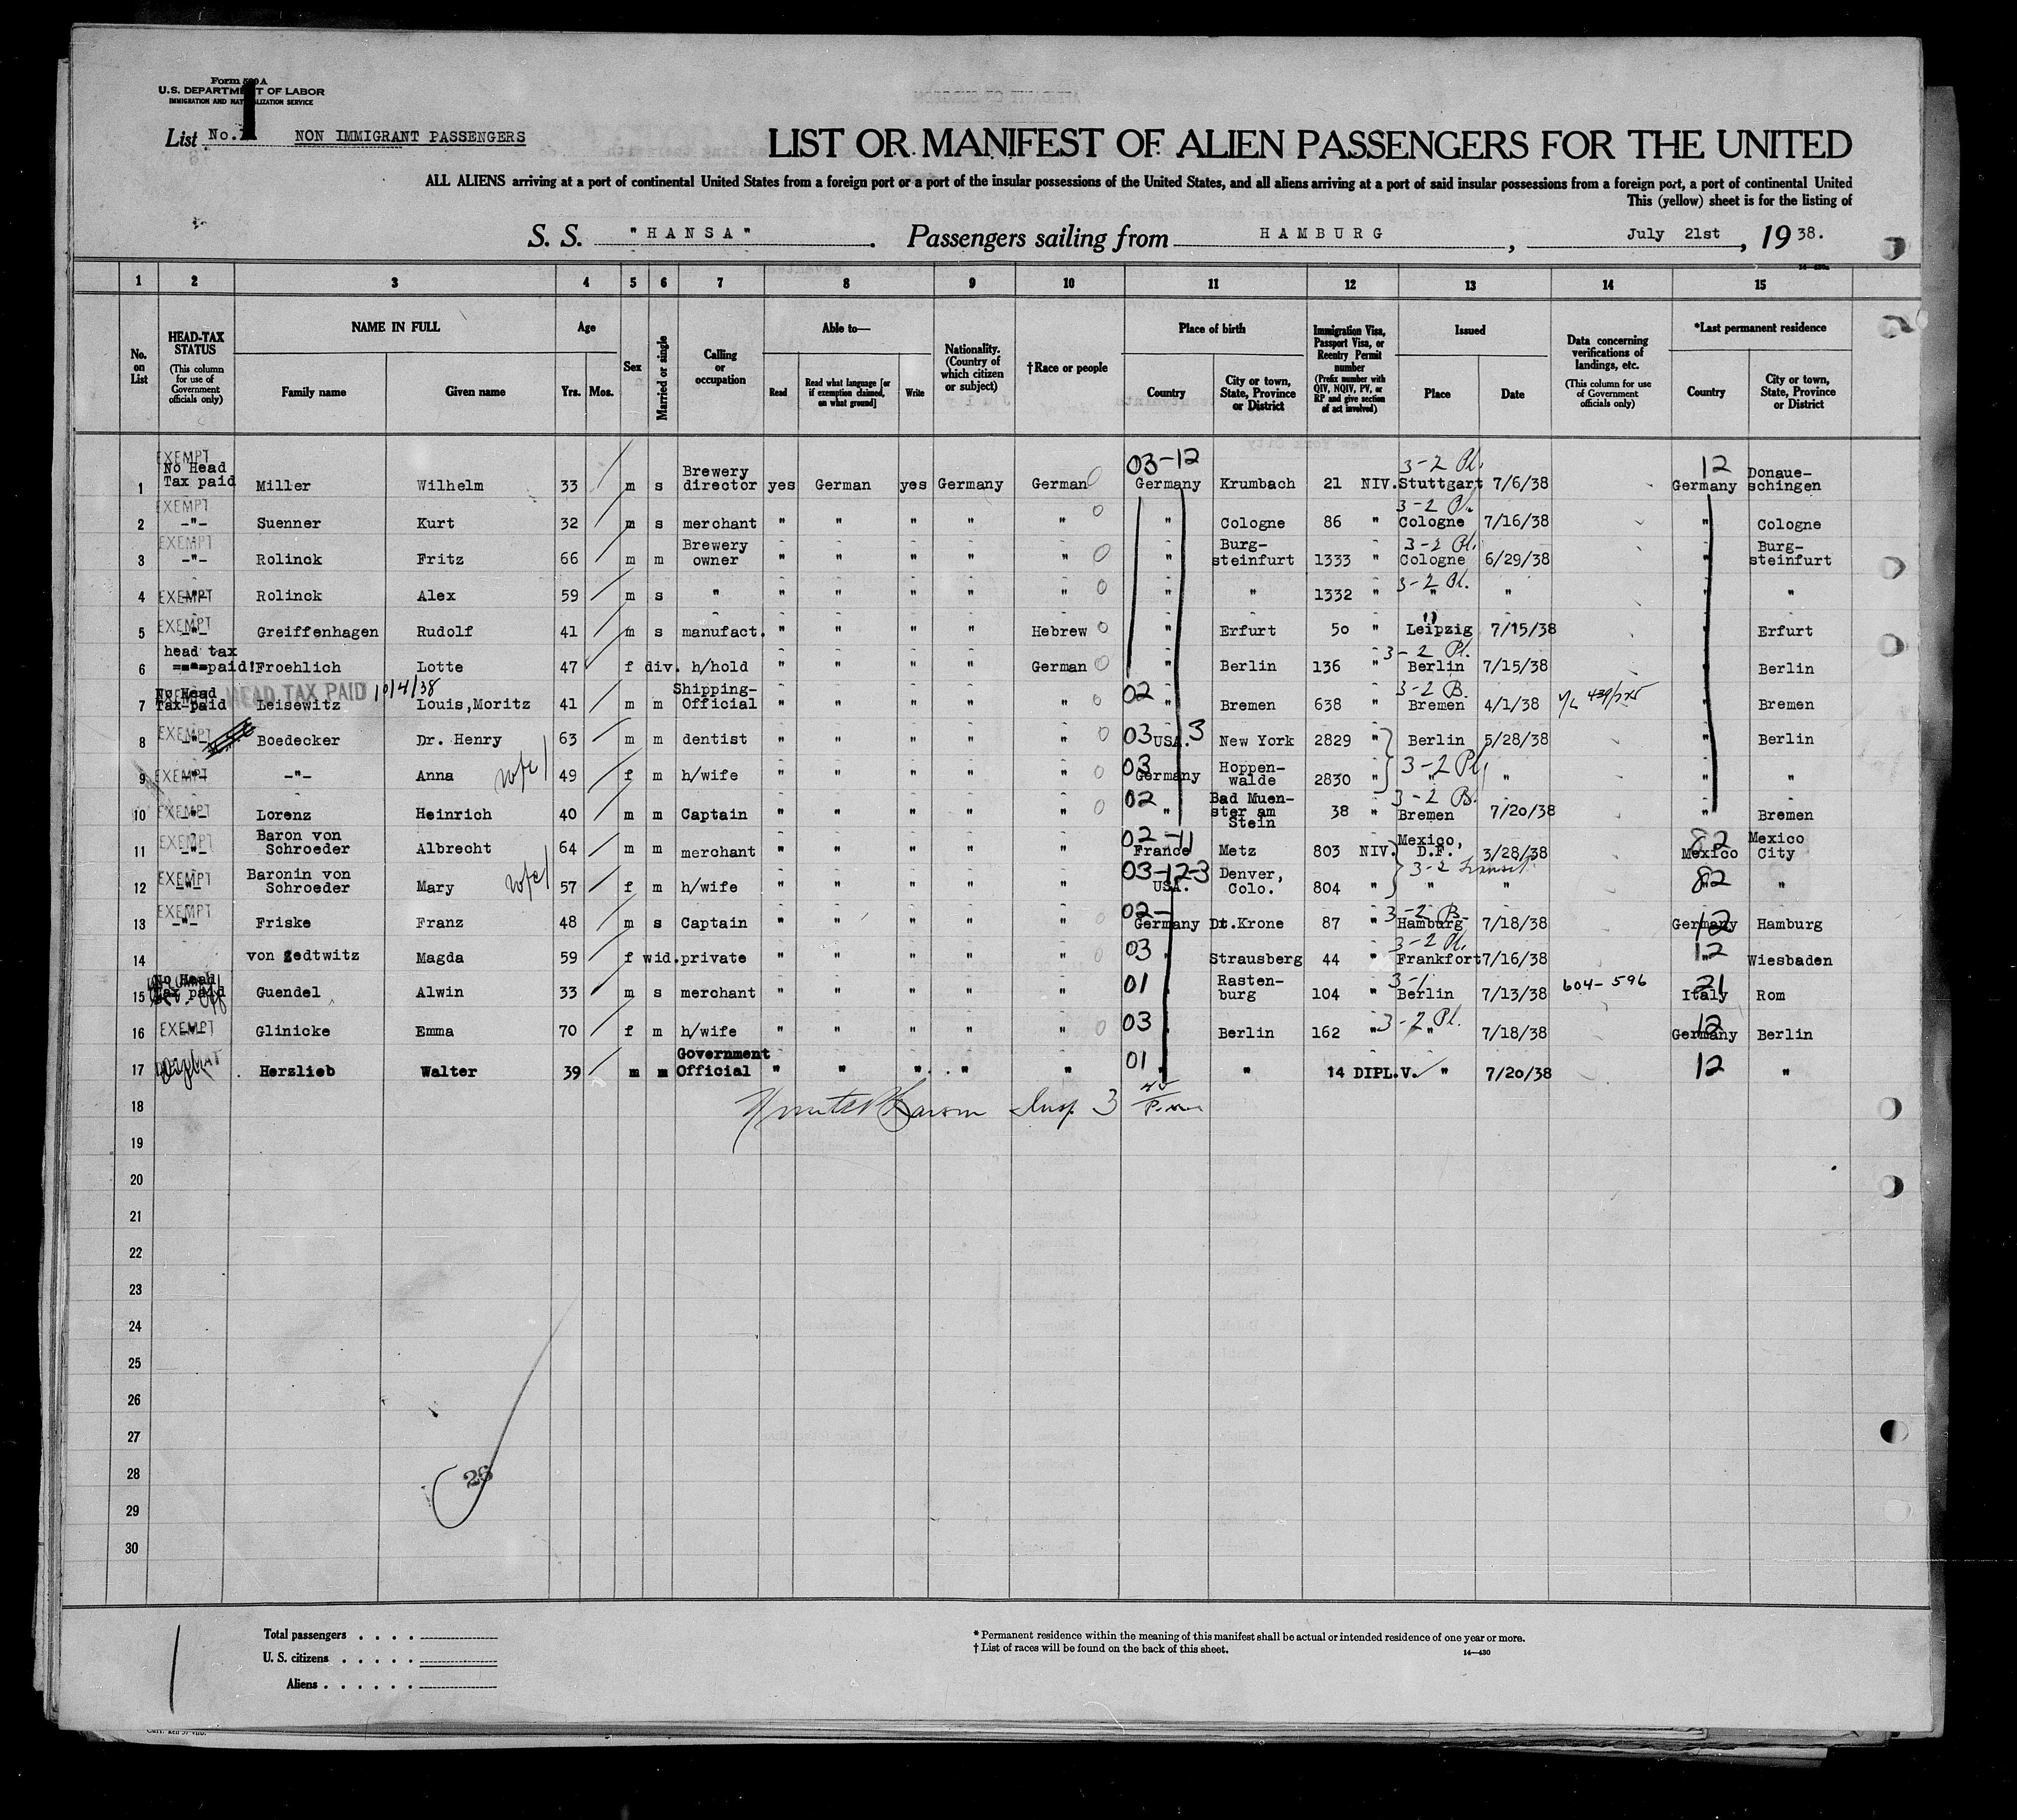 Form 500 A
U.S. DEPARTMENT OF LABOR
IMMIGRATION AND NATURALIZATION SERVICE
List No. 1 NON IMMIGRANT PASSENGERS
LIST OR MANIFEST OF ALIEN PASSENGERS FOR THE UNITED
ALL ALIENS arriving at a port of continental United States from a foreign port or a port of the insular possessions of the United States, and all aliens arriving at a port of said insular possessions from a foreign port, a port of continental United
This (yellow) sheet is for the listing of
S. S. "HANSA". Passengers sailing from HAMBURG, July 21st, 1938.
1 2 3 4 5 6 7 8 9 10 11 12 13 14 15
No. on List
HEAD-TAX STATUS (This column for use of Government officials only)
NAME IN FULL
Family name Given name
Age
Yrs. Mos.
Sex
Married or single
Calling or occupation
Able to—
Read Read what language [or if exemption claimed, on what ground] Write
Nationality. (Country of which citizen or subject)
†Race or people
Place of birth
Country City or town, State, Province or District
Immigration Visa, Passport Visa, or Reentry Permit number (Prefix number with QIV, NQIV, PV, or RP and give section of act involved)
Issued
Place Date
Data concerning verifications of landings, etc. (This column for use of Government officials only)
*Last permanent residence
Country City or town, State, Province or District
1 EXEMPT No Head Tax paid Miller Wilhelm 33 m s Brewery director yes German yes Germany German 03-12 Germany Krumbach 21 NIV. 3-2 Pl. Stuttgart 7/6/38 12 Germany Donaue-schingen
2 EXEMPT -"- Suenner Kurt 32 m s merchant " " " " " " Cologne 86 " 3-2 Pl. Cologne 7/16/38 " Cologne
3 EXEMPT -"- Rolinck Fritz 66 m m Brewery owner " " " " " " Burg-steinfurt 1333 " 3-2 Pl. Cologne 6/29/38 " Burg-steinfurt
4 EXEMPT -"- Rolinck Alex 59 m s " " " " " " " " 1332 " 3-2 Pl. " " " "
5 EXEMPT -"- Greiffenhagen Rudolf 41 m s manufact. " " " " Hebrew " Erfurt 50 " Leipzig 7/15/38 " Erfurt
6 head tax paid! Froehlich Lotte 47 f div. h/hold " " " " German " Berlin 136 " 3-2 Pl. Berlin 7/15/38 " Berlin
7 No Head Tax paid HEAD TAX PAID 10/4/38 Leisewitz Louis,Moritz 41 m m Shipping-Official " " " " " 02 " Bremen 638 " 3-2 B. Bremen 4/1/38 " Bremen
8 EXEMPT -"- Boedecker Dr. Henry 63 m m dentist " " " " " 03 USA. 3 New York 2829 " Berlin 5/28/38 " Berlin
9 EXEMPT -"- -"- Anna wife 49 f m h/wife " " " " " 03 Germany Hoppen-walde 2830 " 3-2 Pl. " " " "
10 EXEMPT -"- Lorenz Heinrich 40 m m Captain " " " " " 02 " Bad Muen-ster am Stein 38 " 3-2 B. Bremen 7/20/38 " Bremen
11 EXEMPT -"- Baron von Schroeder Albrecht 64 m m merchant " " " " " 02-11 France Metz 803 NIV. Mexico, D.F. 3/28/38 82 Mexico Mexico City
12 EXEMPT -"- Baronin von Schroeder Mary wife 57 f m h/wife " " " " " 03-12-3 USA. Denver, Colo. 804 " 3-2 Transit " " 82 " "
13 EXEMPT -"- Friske Franz 48 m s Captain " " " " " 02- Germany Dt.Krone 87 " 3-2 B. Hamburg 7/18/38 12 Germany Hamburg
14 von Zedtwitz Magda 59 f wid. private " " " " " 03 " Strausberg 44 " 3-2 Pl. Frankfort 7/16/38 12 " Wiesbaden
15 No Head Tax paid Guendel Alwin 33 m s merchant " " " " " 01 " Rasten-burg 104 " 3-1 Berlin 7/13/38 604-596 21 Italy Rom
16 EXEMPT -"- Glinicke Emma 70 f m h/wife " " " " " 03 " Berlin 162 " 3-2 Pl. " 7/18/38 12 Germany Berlin
17 Herzlieb Walter 39 m m Government Official " " " " " 01 " " 14 DIPL.V. " 7/20/38 12 "
18
19
20
21
22
23
24
25
26
27
28
29
30
26
Total passengers . . . .
U. S. citizens . . . . .
Aliens . . . . . .
* Permanent residence within the meaning of this manifest shall be actual or intended residence of one year or more.
† List of races will be found on the back of this sheet.
14—430